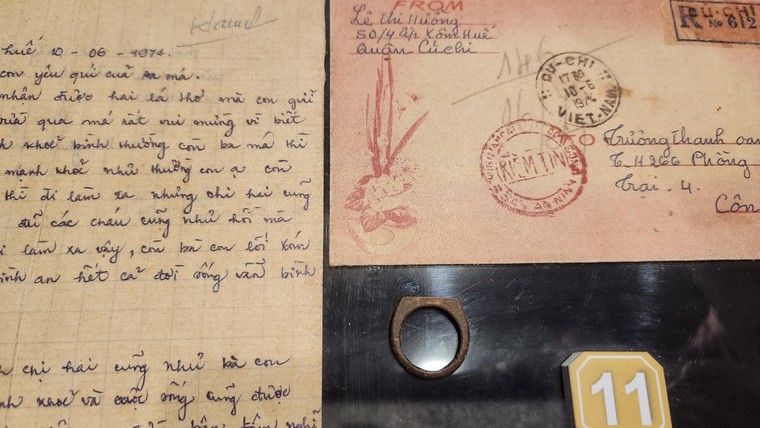 Huế 10-06-1974.
con yêu quí của ba má.
nhận được hai lá thơ mà con gửi
vừa qua má rất vui mừng vì biết
khoẻ bình thường còn ba má thì
mạnh khoẻ như thường con ạ còn
thì đi làm xa nhưng chi hai cũng
đủ các cháu cũng như hồi mà
đi làm xa vậy, còn bà con lối xóm
bình an hết cả đời sống vẫn bình
chị hai cũng như bà con
khoẻ và cuộc sống cũng được
FROM
Lê Thi Hưởng
50/4 Ấp Xóm Huế
Quận Củ chi
R CU-CHI
No 612
CU-CHI
17 30
10-6
1974
VIET-NAM
KIỂM TÍN
TO
Trương thanh
T.H266 Phòng
Trại. 4.
Côn
11